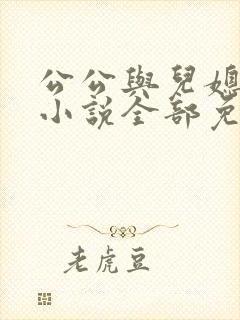 公公與兒媳
小說全部免
老虎豆